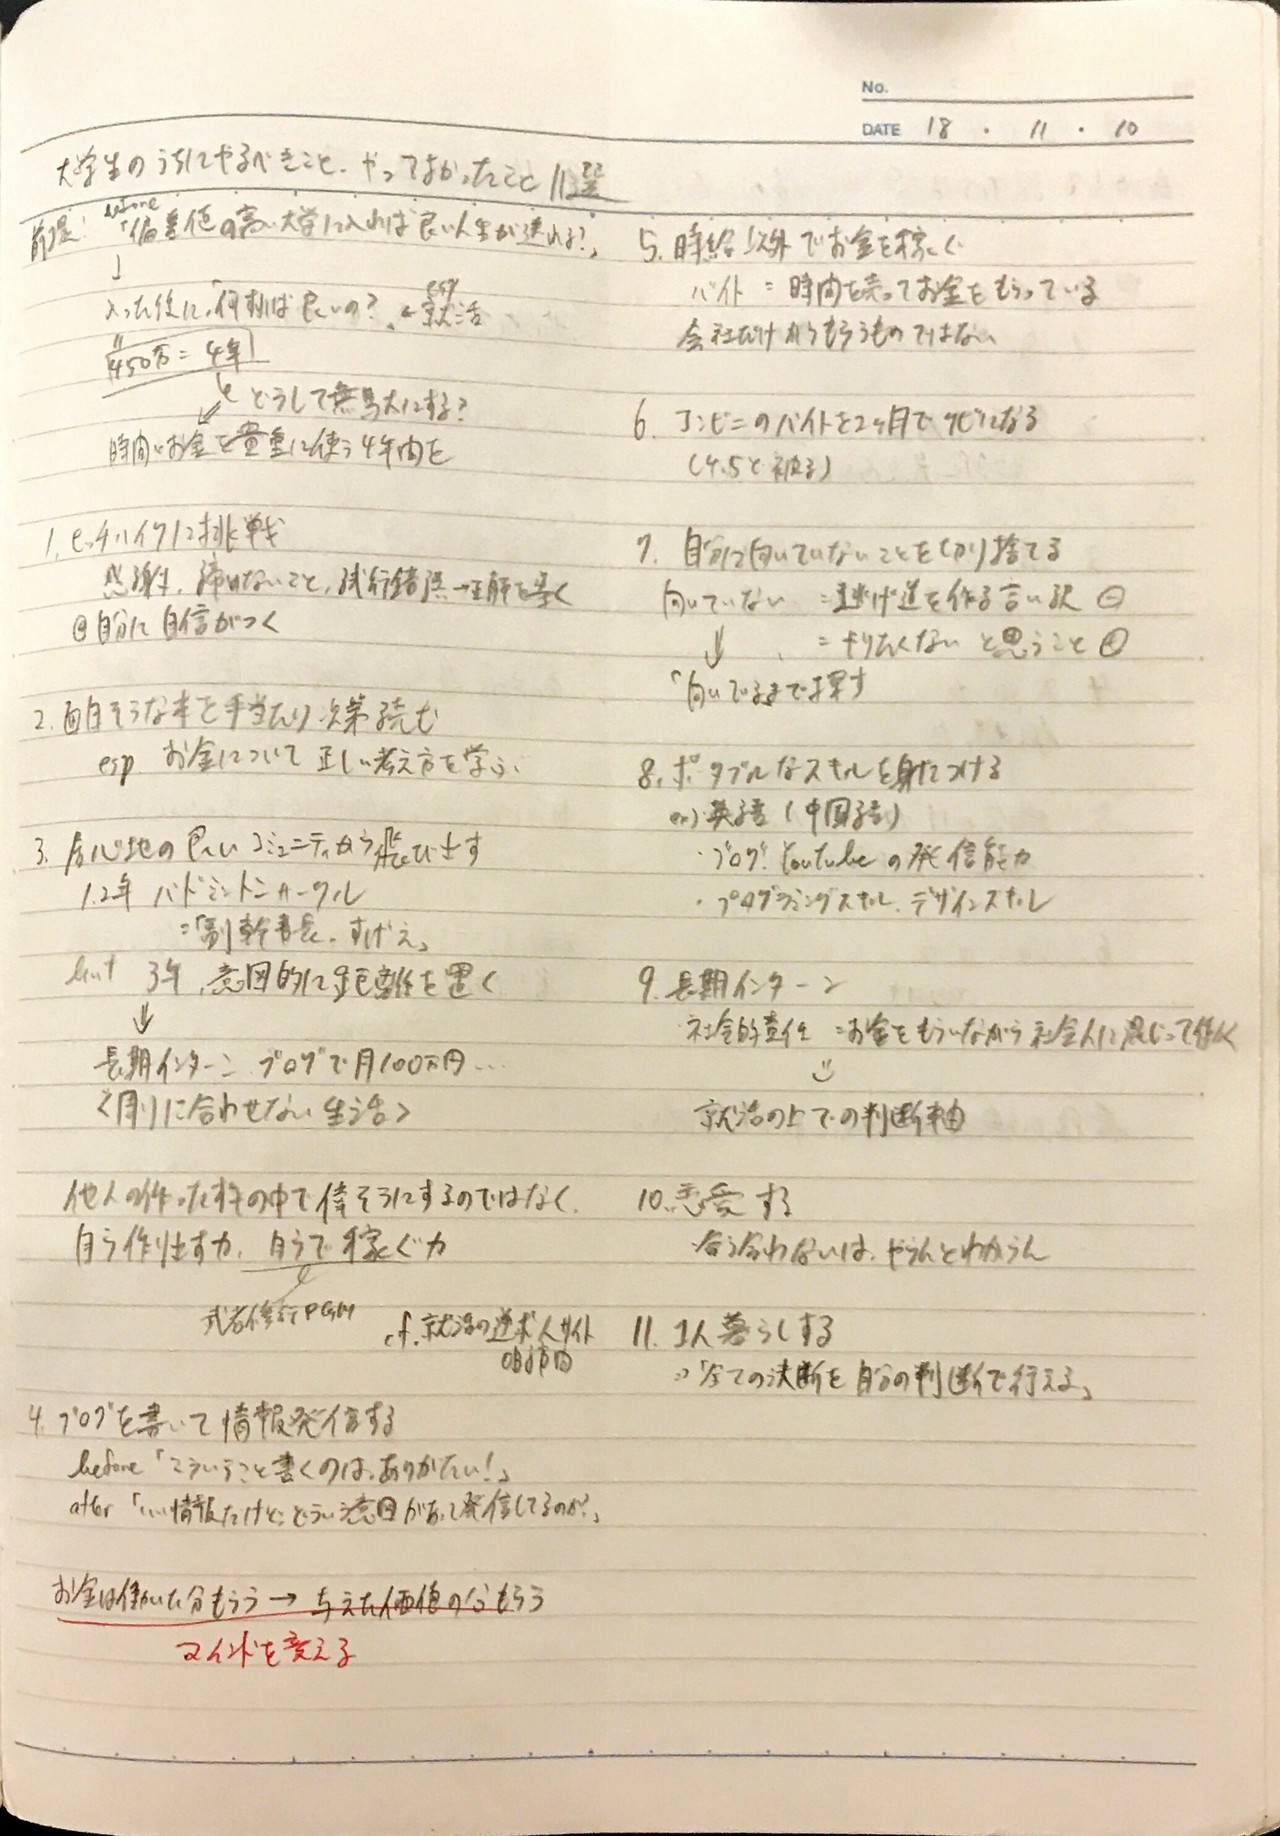 No.
DATE 18 ・ 11 ・ 10
大学生のうちにやるべきこと、やってよかったこと11選
前提: before「偏差値の高い大学に入れば良い人生が送れる?」
↓
入った後に、何すれば良いの? ← esp 就活
450万 = 4年
どうして無駄にする?
時間とお金を貴重に使う4年間を
1. ヒッチハイクに挑戦
感謝、諦めないこと、試行錯誤→正解を導く
自分に自信がつく
2. 面白そうな本を手当たり次第読む
esp お金について正しい考え方を学ぶ
3. 居心地の良いコミュニティから飛び出す
1.2年 バドミントンサークル
=「副幹事長、すげえ」
but 3年、意図的に距離を置く
⇓
長期インターン ブログで月100万円...
<周りに合わせない生活>
他人の作った中で偉そうにするのではなく、
自ら作り出す力、自らで稼ぐ力
武者修行PGM
cf. 就活の逆求人サイト
4. ブログを書いて情報発信する
before「こういうこと書くのは、ありがたい!」
after「いい情報だけど、どういう意図があって発信してるのか?」
お金は働いた分もらう → 与えた価値の分もらう
マインドを変える
5. 時給以外でお金を稼ぐ
バイト = 時間を売ってお金をもらっている
会社だけからもらうものではない
6. コンビニのバイトを2ヶ月でクビになる
(4.5と被る)
7. 自分に向いていないことを切り捨てる
向いていない = 逃げ道を作る言い訳 ⊖
= やりたくないと思うこと ⊕
⇓
「向いてるまで探す
8. ポータブルなスキルを身につける
ex) 英語 (中国語)
・ブログ、Youtubeの発信能力
・プログラミングスキル、デザインスキル
9. 長期インターン
社会的責任 = お金をもらいながら社会人に混じって働く
⇓
就活の上での判断軸
10. 恋愛する
合う合わないは、やらんとわからん
11. 1人暮らしする
⇒「全ての決断を自分の判断で行える」